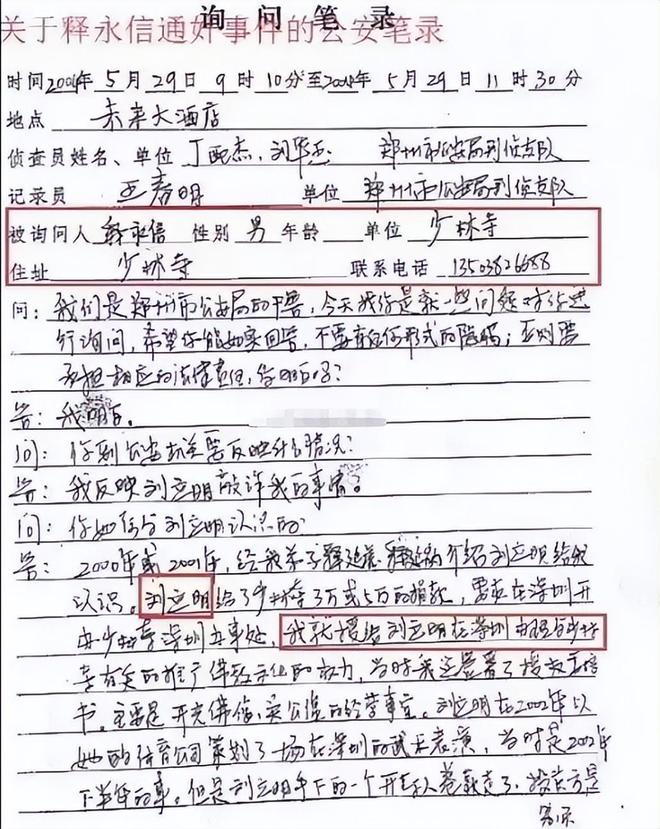 询问笔录
关于释永信通奸事件的公安笔录
时间2004年5月29日9时10分至2004年5月29日11时30分
地点 未来大酒店
侦查员姓名、单位 丁 杰、刘华 郑州市公安局刑侦支队
记录员 王春明 单位 郑州市公安局刑侦支队
被询问人 释永信 性别 男 年龄 单位 少林寺
住址 少林寺 联系电话 13503826688
问：我们是郑州市公安局的干警，今天找你是就一些问题对你进
行询问，希望你能如实回答，不要有任何形式的隐瞒；否则要
承担相应的法律责任，你明白吗？
答：我明白。
问：你到公安机关要反映什么情况？
答：我反映刘立明敲诈我的事情。
问：你如何与刘立明认识的？
答：2000年或2001年，经我弟子释延 介绍刘立明给我
认识。刘立明给了少林寺3万或5万的捐款，要求在深圳开
办少林寺深圳办事处，我就授给刘立明在深圳办理与少林
寺有关的推广佛教文化的权力，当时我还签署了授权委托
书。主要是开光佛像、 的经营事宜。刘立明在2002年以
她的体育公司策划了一场在深圳的武术表演，当时是2002年
下半年的事。但是刘立明手下的一个 人卷款走了，投资方是